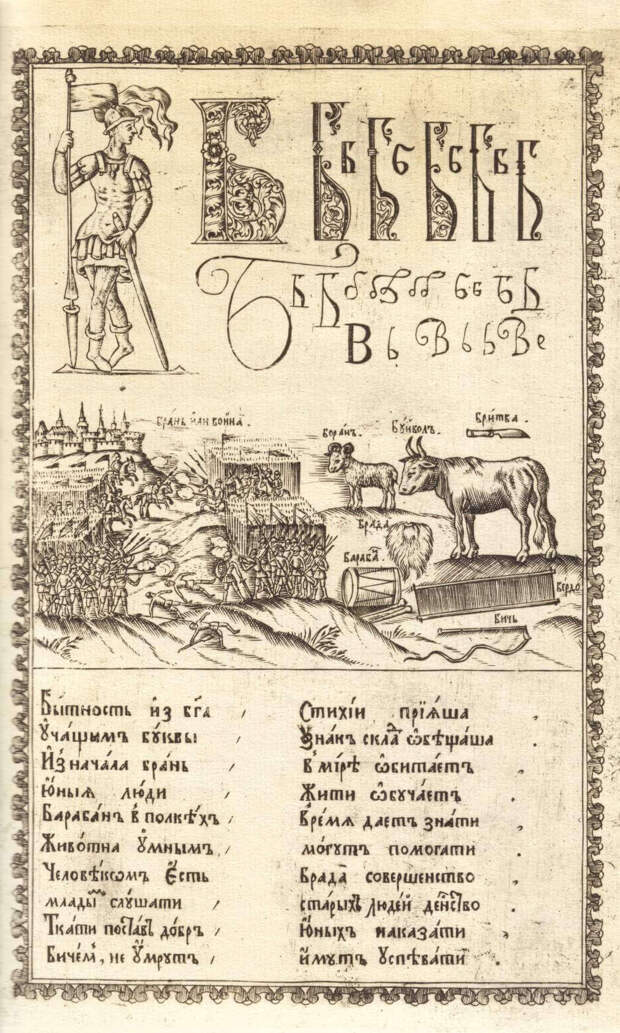 Б
Бра́нь и҆лѝ война̀.
Боранъ.
Бу́йволъ.
Бритва.
Брада
Бараба̑.
Бердо
Бичь
Бы́тность и҆з бг҃а , Стихі́и прїѧ́ша ,
Оу҆ча́щымъ бꙋ́квы , Зна́къ скла ѡ҆бѣща́ша .
И҆знача́ла бра́нь , в' мі́рѣ ѡ҆бита́етъ ,
Ю҆́ныѧ лю́ди , Жи́ти ѡ҆бꙋча́етъ .
Бараба́нъ в полкѣ́хъ , вре́мѧ дае́тъ зна́ти ,
Живо́тна оу҆́мнымъ , мо́гꙋтъ помога́ти .
Человѣ́кѡмъ є҆́сть , Брада̀ соверше́нство ,
млады̑ слꙋ́шати , ста́рыхъ людей де́нство .
Тка́ти поста́въ до́бръ , Ю҆́ныхъ наказа́ти ,
Биче́мъ, не оу҆́мрꙋтъ , и҆́мꙋтъ оу҆спѣва́ти .